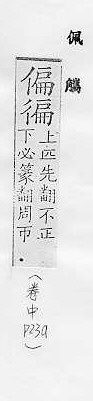 佩觿
偏徧
上匹先翻不正
下必篆翻周帀
(卷中 p23a)